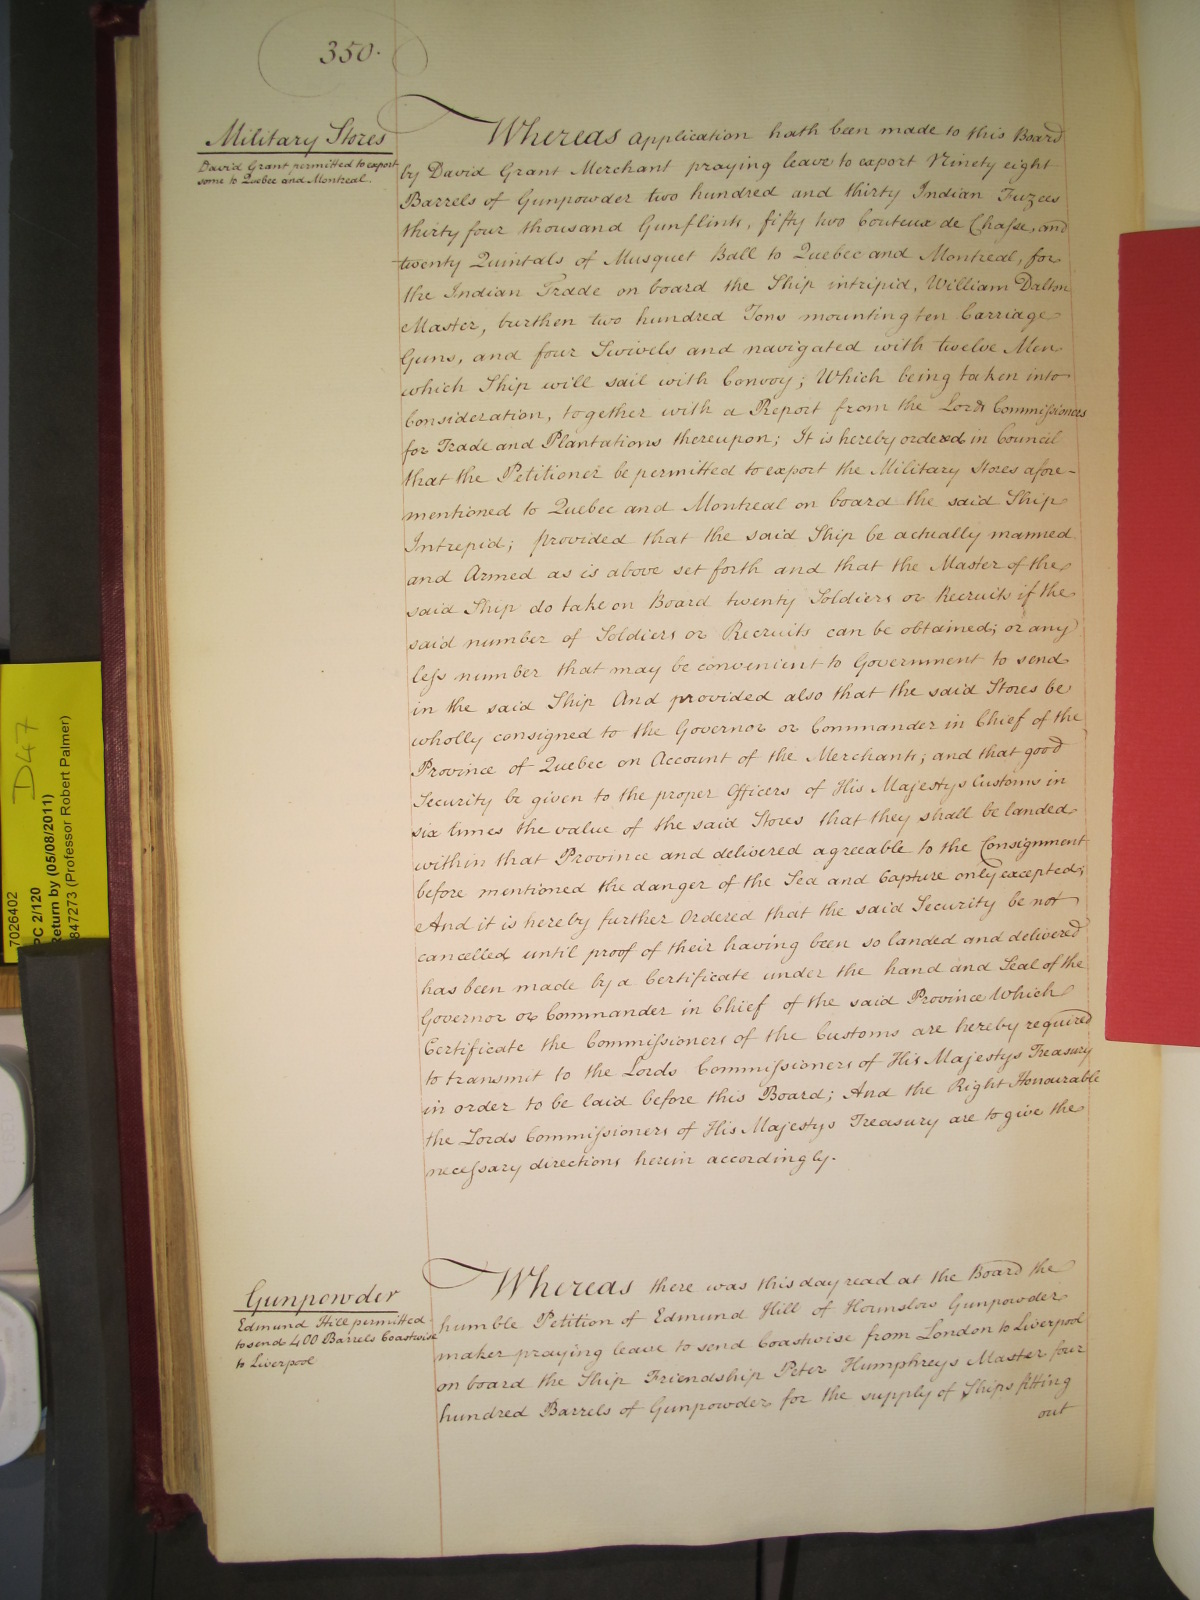 350.
Military Stores
David Grant permitted to export
some to Quebec and Montreal.
Whereas application hath been made to this Board
by David Grant Merchant praying leave to export Ninety eight
Barrels of Gunpowder two hundred and thirty Indian Fuzees
thirty four thousand Gunflints, fifty two Couteux de Chasse, and
twenty Quintals of Musquet Ball to Quebec and Montreal, for
the Indian Trade on board the Ship intripid, William Dalton
Master, burthen two hundred Tons mounting ten Carriage
Guns, and four Swivels and navigated with twelve Men
which Ship will sail with Convoy; Which being taken into
Consideration, together with a Report from the Lords Commissioners
for Trade and Plantations thereupon; It is hereby ordered in Council
that the Petitioner be permitted to export the Military Stores afore-
mentioned to Quebec and Montreal on board the said Ship
Intrepid; provided that the said Ship be actually manned
and Armed as is above set forth and that the Master of the
said Ship do take on Board twenty Soldiers or Recruits if the
said number of Soldiers or Recruits can be obtained; or any
less number that may be convenient to Government to send
in the said Ship And provided also that the said Stores be
wholly consigned to the Governor or Commander in Chief of the
Province of Quebec on Account of the Merchants; and that good
Security be given to the proper Officers of His Majestys Customs in
six times the value of the said Stores that they shall be landed
within that Province and delivered agreeable to the Consignment
before mentioned the danger of the Sea and Capture only excepted;
And it is hereby further Ordered that the said Security be not
cancelled until proof of their having been so landed and delivered
has been made by a Certificate under the hand and Seal of the
Governor or Commander in Chief of the said Province Which
Certificate the Commissioners of the Customs are hereby required
to transmit to the Lords Commissioners of His Majestys Treasury
in order to be laid before this Board; And the Right Honourable
the Lords Commissioners of His Majestys Treasury are to give the
necessary directions herein accordingly.
Gunpowder
Edmund Hill permitted
to send 400 Barrels Coastwise
to Liverpool
Whereas there was this day read at the Board the
humble Petition of Edmund Hill of Hounslow Gunpowder
maker praying leave to send Coastwise from London to Liverpool
on board the Ship Friendship Peter Humphreys Master four
hundred Barrels of Gunpowder for the supply of Ships fitting
out
7026402
PC 2/120
Return by (05/08/2011)
847273 (Professor Robert Palmer)
D47